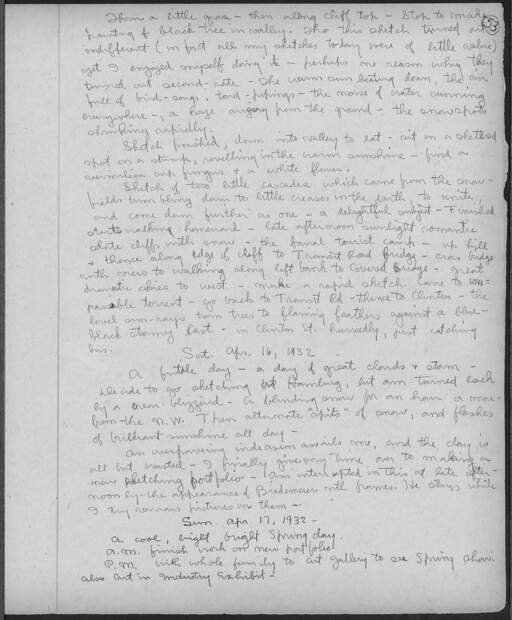 53
Thru a little grove - then along cliff top - Stop to make
painting of black tree in valley. Tho this sketch turned out
indifferent (in fact all my sketches today were of little value)
yet I enjoyed myself doing it - perhaps one reason why they
turned out second-rate - The warm sun beating down, the air
full of bird-songs, toad-pipings - the noise of water running
everywhere -, a haze arising from the ground - the snow spots
shrinking rapidly.
Sketch finished, down into valley to eat - sit in a sheltered
spot on a stump, revelling in the warm sunshine - find a
vermilion cup fungus & a white flower.
Sketch of two little cascades which came from the snow-
fields tumbling down to little creases in the earth to unite
and come down further as one - a delightful subject - Finished
start walking homeward - late afternoon sunlight romantic
slate cliffs with snow - the banal tourist camp - up hill
& thence along edge of cliff to Transit Road bridge - cross bridge
with view to walking along left bank to Covered Bridge - great
dramatic skies to west - make a rapid sketch. Came to im=
passable torrent - go back to Transit Rd - thence to Clinton - the
level sun-rays turn trees to flaming feathers against a blue-
black stormy East - in Clinton St. hurriedly, just catching
bus.
Sat. Apr. 16, 1932
A futile day - a day of great clouds & storm -
Decide to go sketching at Hamburg, but am turned back
by a blizzard - A blinding snow for an hour a mae-
from the N.W. Then alternate "spits" of snow, and flashes
of brilliant sunshine all day -
An overpowering indecision assails me, and the day is
all but wasted - I finally give my time over to making a
new sketching portfolio - Am interrupted in this at late after-
noon by the appearance of Bredemeier with frames. He stays while
I try various pictures in them -
Sun. Apr. 17, 1932 -
A cool, bright Spring day.
A.M. finish work on new portfolio
P.M. with whole family to art gallery to see Spring Show.
also Art in Industry Exhibit -